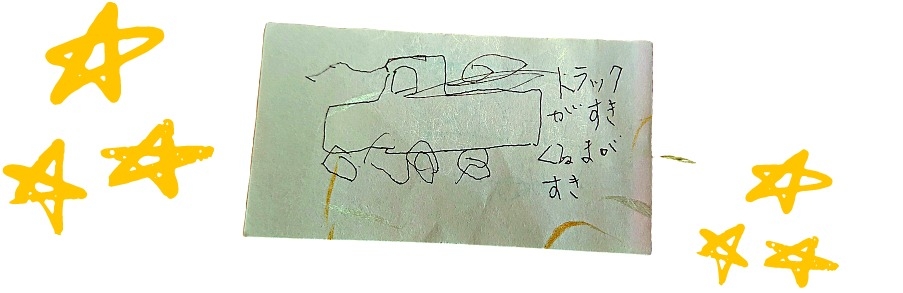 トラック
がすき
くるまが
すき